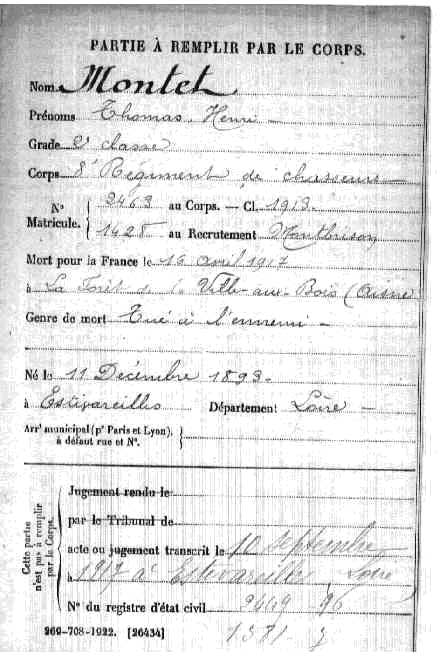 PARTIE À REMPLIR PAR LE CORPS.
Nom Montet
Prénoms Thomas, Henri
Grade 2e classe
Corps 8e Régiment de chasseurs
No Matricule. { 3463 au Corps. — Cl. 1913.
1428 au Recrutement Montbrison
Mort pour la France le 16 avril 1917
à La Forêt la Ville-aux-Bois (Aisne
Genre de mort Tué à l'ennemi
Né le 11 Décembre 1893.
à Estivareilles Département Loire
Arrt municipal (pr Paris et Lyon), à défaut rue et No. }
Cette partie n'est pas à remplir par le Corps.
Jugement rendu le
par le Tribunal de
acte ou jugement transcrit le 10 septembre
à 1917 à Estivareilles, Loire
No du registre d'état civil 9449 96
1581
969-708-1922. [26434]